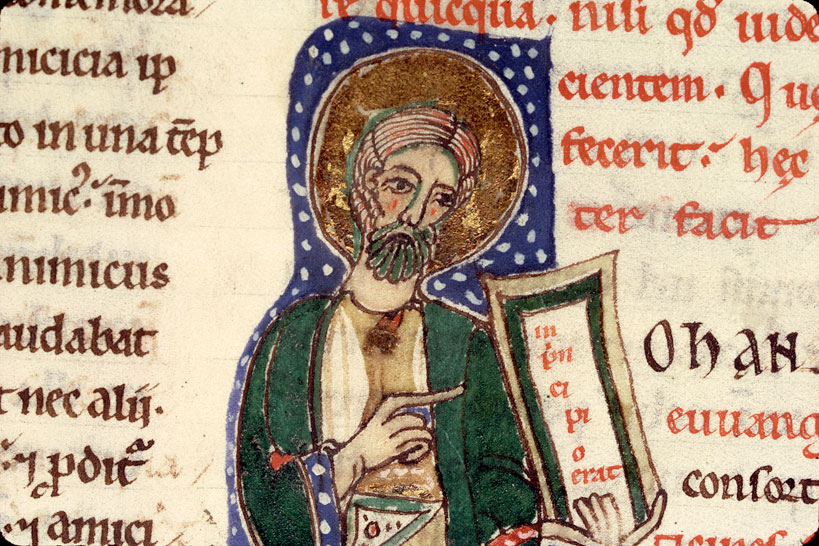 micicia ip
to in una tēp
imic⁹. īmo
nimicus
audabat
t nec alij.
⁊ ꝑdit
⁊ amici
quicqua. nisi qđ uide
cientem. Q
fecerit. hęc
ter facit
in
p̄n
ci
pi
o
erat
Ohan
euuang
consort